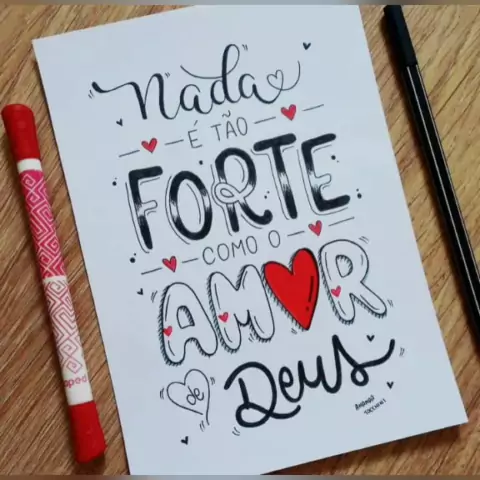 Nada
É TÃO
FORTE
COMO O
AMOR
de
Deus
aped